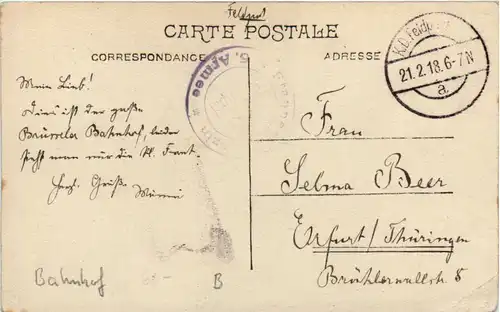 Feldpost
CARTE POSTALE
CORRESPONDANCE
ADRESSE
K.D. Feldpost
21.2.18. 6-7N
a.
5. Armee
Mein Lieb!
Dies ist der große
Brüsseler Bahnhof, leider
sieht man nur die Front.
Herzl.
Frau
Selma Beer
Erfurt / Thüringen
Brühlerwallstr 8
Bahnhof
B